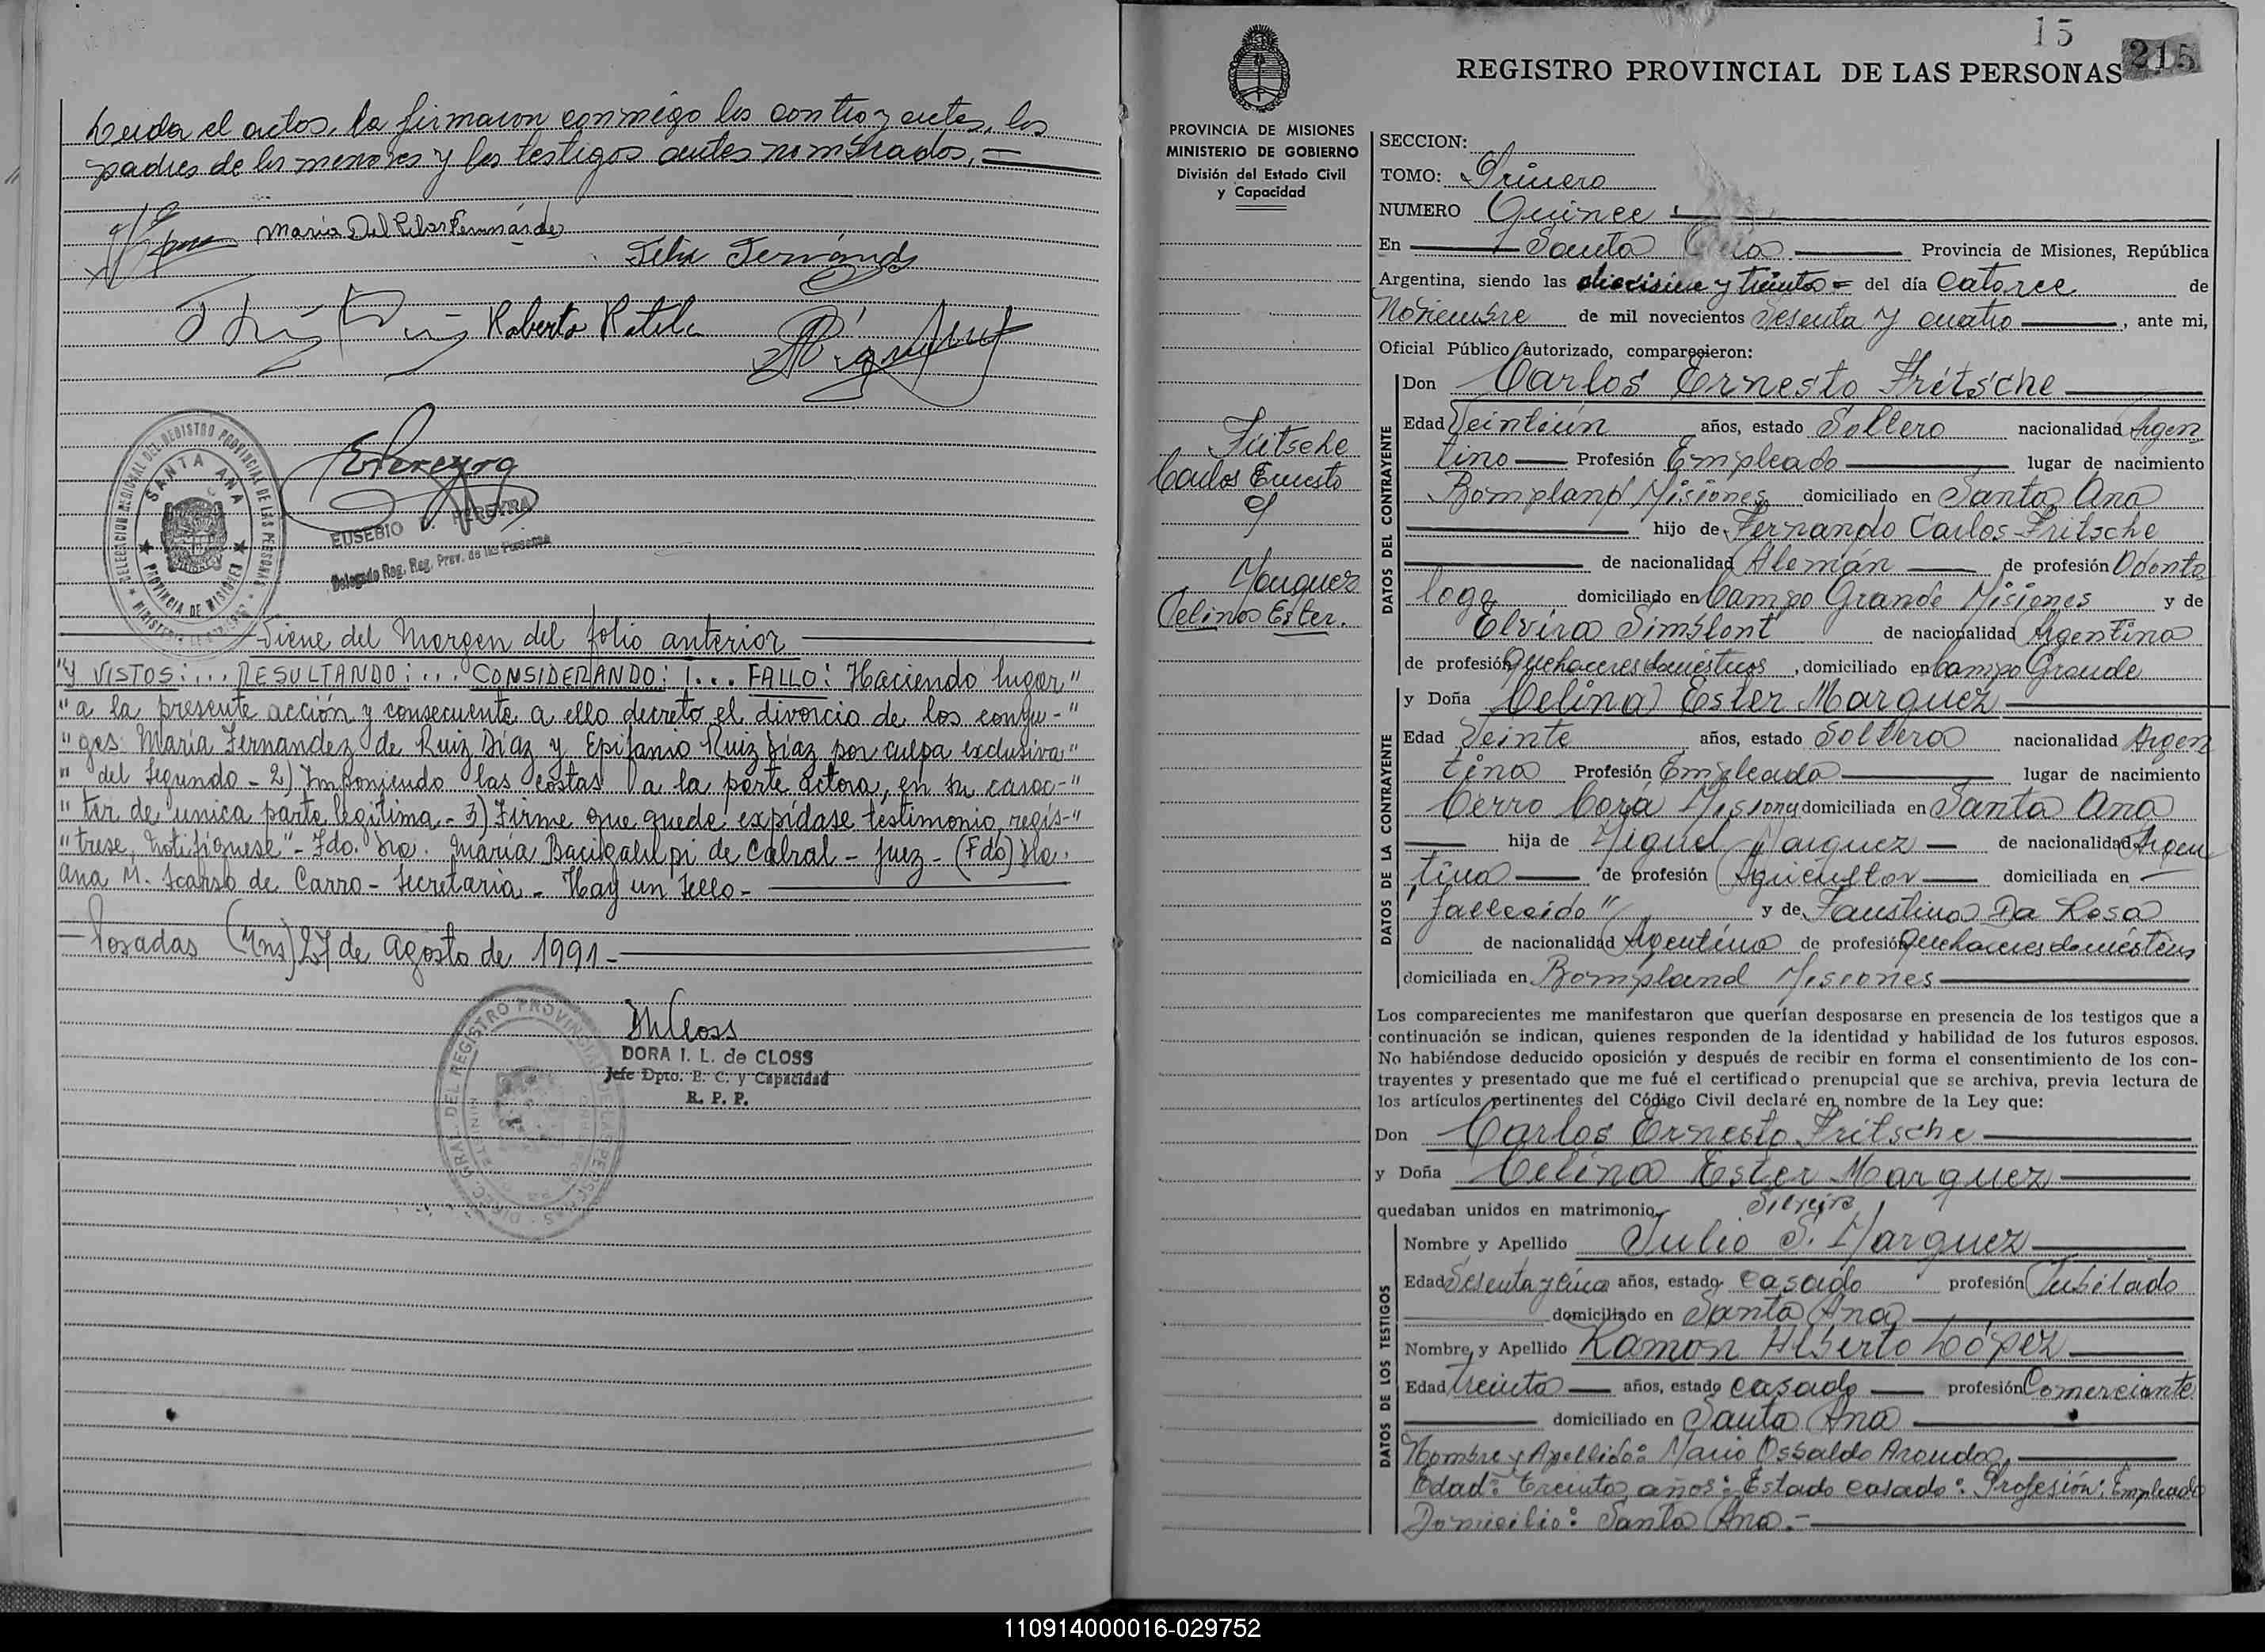 Leida el acto, la firmaron conmigo los contrayentes, los
padres de los menores y los testigos antes nombrados,
Maria Del Pilar Fernández
Felix Fernández
Roberto
DELEGACION DEL REGISTRO PROVINCIAL DE LAS PERSONAS
SANTA ANA
PROVINCIA DE MISIONES
EUSEBIO PEREYRA
Delegado Reg. Prov. de las Personas
Viene del Morgen del folio anterior
"Y VISTOS:... RESULTANDO:... CONSIDERANDO: I... FALLO: Haciendo lugar"
"a la presente acción y consecuente a ello decreto el divorcio de los conyu-"
"ges María Fernandez de Ruiz Díaz y Epifanio Ruiz Díaz por culpa exclusiva"
"del segundo - 2) Imponiendo las costas a la parte actora, en su carac-"
"ter de unica parte legitima - 3) Firme que quede expídase testimonio, regís-"
"trese, Notifíquese" - Fdo. Dra. María Bacigalupi de Cabral - Juez - (Fdo) Dra.
Ana M. Scarso de Carro - Secretaria - Hay un Sello -
Posadas (Mns) 27 de Agosto de 1991 -
DORA I. L. de CLOSS
Jefe Dpto. E. C. y Capacidad
R. P. P.
15
215
REGISTRO PROVINCIAL DE LAS PERSONAS
PROVINCIA DE MISIONES
MINISTERIO DE GOBIERNO
División del Estado Civil
y Capacidad
Fritsche
Carlos Ernesto
y
Marquez
Celina Ester.
SECCION:
TOMO: Primero
NUMERO Quince
En Santa Ana Provincia de Misiones, República
Argentina, siendo las diecisiete y treinta = del día Catorce de
Noviembre de mil novecientos Sesenta y cuatro, ante mi,
Oficial Público autorizado, comparecieron:
DATOS DEL CONTRAYENTE
Don Carlos Ernesto Fritsche
Edad Veintiún años, estado Soltero nacionalidad Argen
tino Profesión Empleado lugar de nacimiento
Bompland Misiones domiciliado en Santa Ana
hijo de Fernando Carlos Fritsche
de nacionalidad Alemán de profesión Odonto
logo domiciliado en Campo Grande Misiones y de
Elvira Simslont de nacionalidad Argentina
de profesión Quehaceres domésticos, domiciliado en Campo Grande
DATOS DE LA CONTRAYENTE
y Doña Celina Ester Marquez
Edad Veinte años, estado Soltera nacionalidad Argen
tina Profesión Empleada lugar de nacimiento
Cerro Corá Misiones domiciliada en Santa Ana
hija de Miguel Marquez de nacionalidad Argen
tina de profesión Agricultor domiciliada en
"fallecido" y de Faustina Da Rosa
de nacionalidad Argentina de profesión Quehaceres domésticos
domiciliada en Bompland Misiones
Los comparecientes me manifestaron que querían desposarse en presencia de los testigos que a
continuación se indican, quienes responden de la identidad y habilidad de los futuros esposos.
No habiéndose deducido oposición y después de recibir en forma el consentimiento de los con-
trayentes y presentado que me fué el certificado prenupcial que se archiva, previa lectura de
los artículos pertinentes del Código Civil declaré en nombre de la Ley que:
Don Carlos Ernesto Fritsche
y Doña Celina Ester Marquez
quedaban unidos en matrimonio
Silveira
DATOS DE LOS TESTIGOS
Nombre y Apellido Julio S. Marquez
Edad Sesenta y cinco años, estado casado profesión Jubilado
domiciliado en Santa Ana
Nombre y Apellido Ramon Alberto López
Edad treinta años, estado casado profesión Comerciante
domiciliado en Santa Ana
Nombre y Apellido: Mario Osvaldo Aranda,
Edad: treinta años: Estado casado: Profesión: Empleado
Domicilio: Santa Ana.-
110914000016-029752